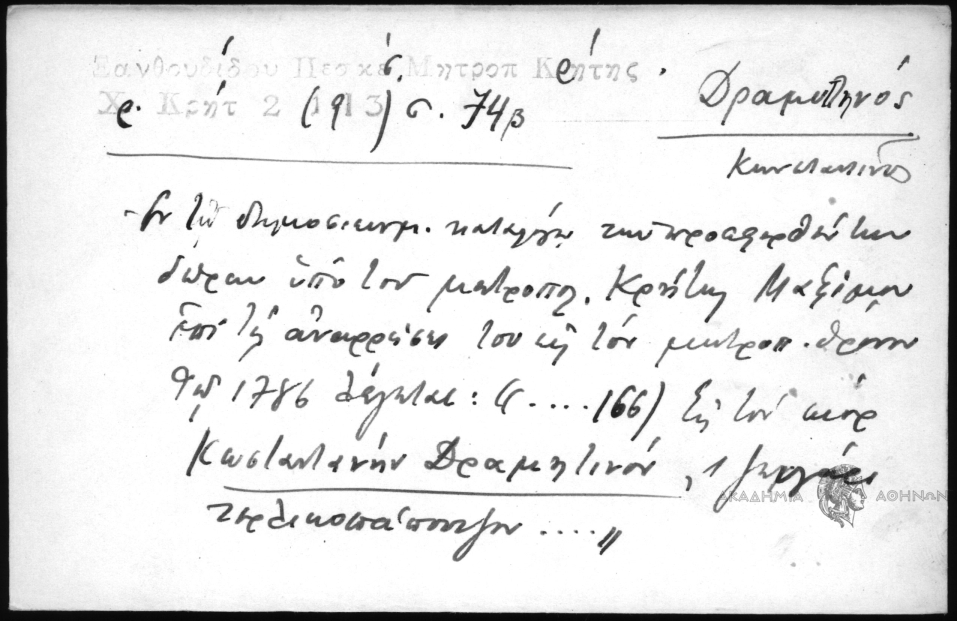 Ξανθουδίδου Πεσκέσ. Μητροπ Κρήτης.
Χρ. Κρήτ 2 (1913) σ. 74β
Δραμυτηνός
Κωνσταντίνος
Ἐν τῷ δημοσιευομ. καταλόγῳ τῶν προσφερθέντων
δώρων ὑπὸ τοῦ μητροπολ. Κρήτης Μαξίμου
ἐπὶ τῇ ἀναρρήσει του εἰς τὸν μητροπ. θρόνον
τῷ 1786 λέγεται: « .... 166) Εἰς τὸν σιὸρ
Κωσταντανὴν Δραμητινόν, 1 ζυγάρι
τερλικοπάπουτζον .... »
ΑΚΑΔΗΜΙΑ ΑΘΗΝΩΝ